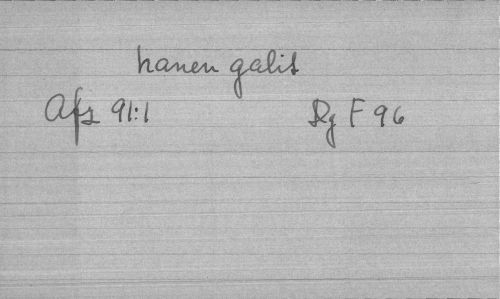 hanen galit
Afz 91:1 Rg F 96